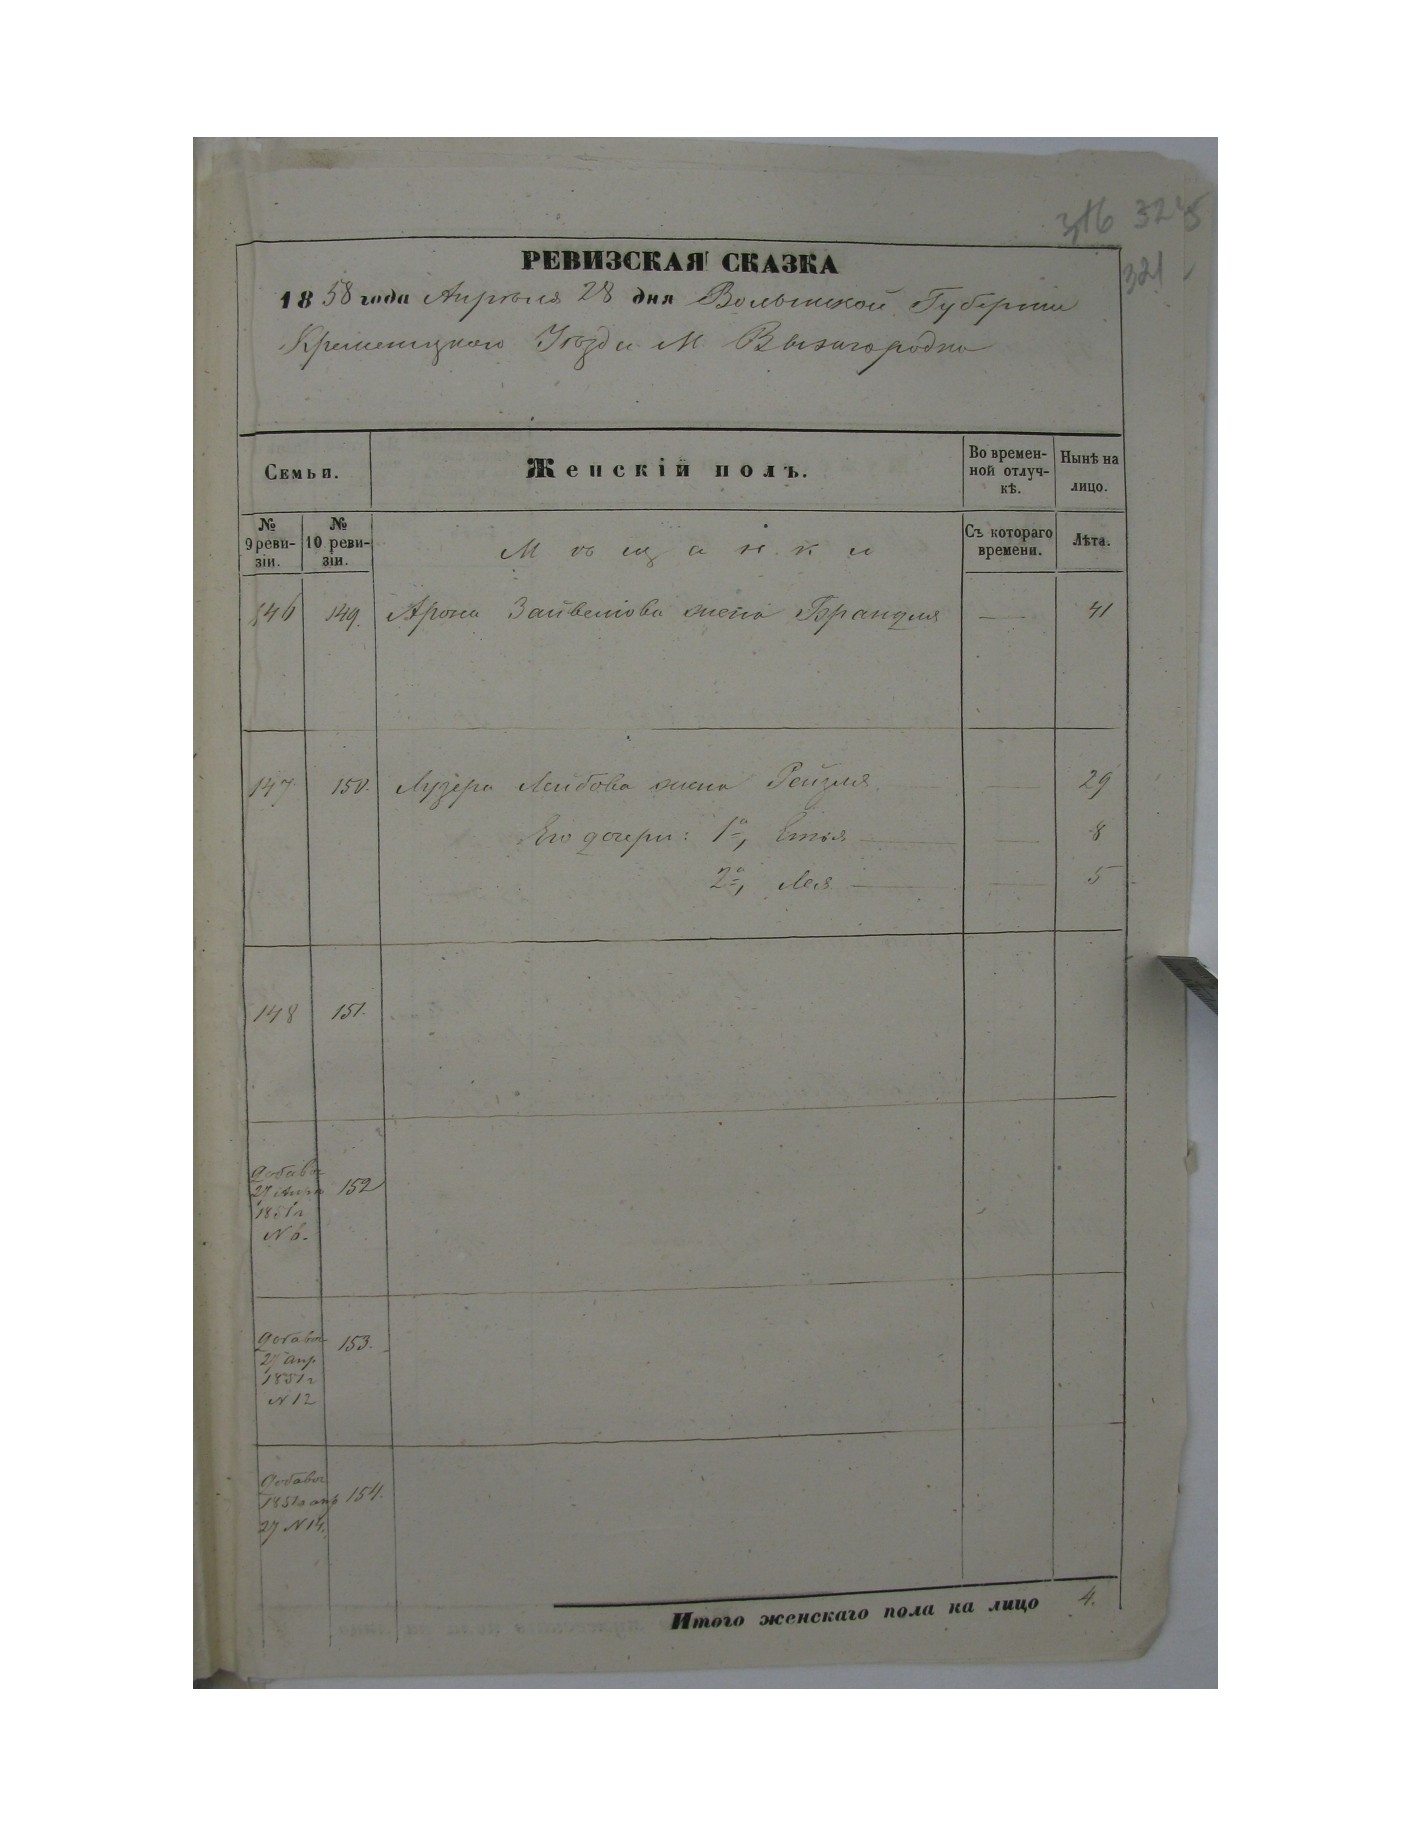 316 3245
321
РЕВИЗСКАЯ СКАЗКА
1858 года Апрѣля 28 дня Волынской Губерніи
Кременецкаго Уѣзда М. Вышгородка
Семьи.
Женскій полъ.
Во времен-
ной отлуч-
кѣ.
Нынѣ на
лицо.
№
9 реви-
зіи.
№
10 реви-
зіи.
Мѣщанки
Съ котораго
времени.
Лѣта.
146 149. Арона Зайвелова жена Брандля — 41
147. 150. Лузера Лейбова жена Рейзля — 29
Его дочери: 1я, Етья — 8
2я, Лея — 5
148 151.
добавоч
27 Апр
1851г
N 6.
152
добавоч
27 апр
1851г
N 12
153.
добавоч
1851г апр
27 N 14.
154.
Итого женскаго пола на лицо 4.